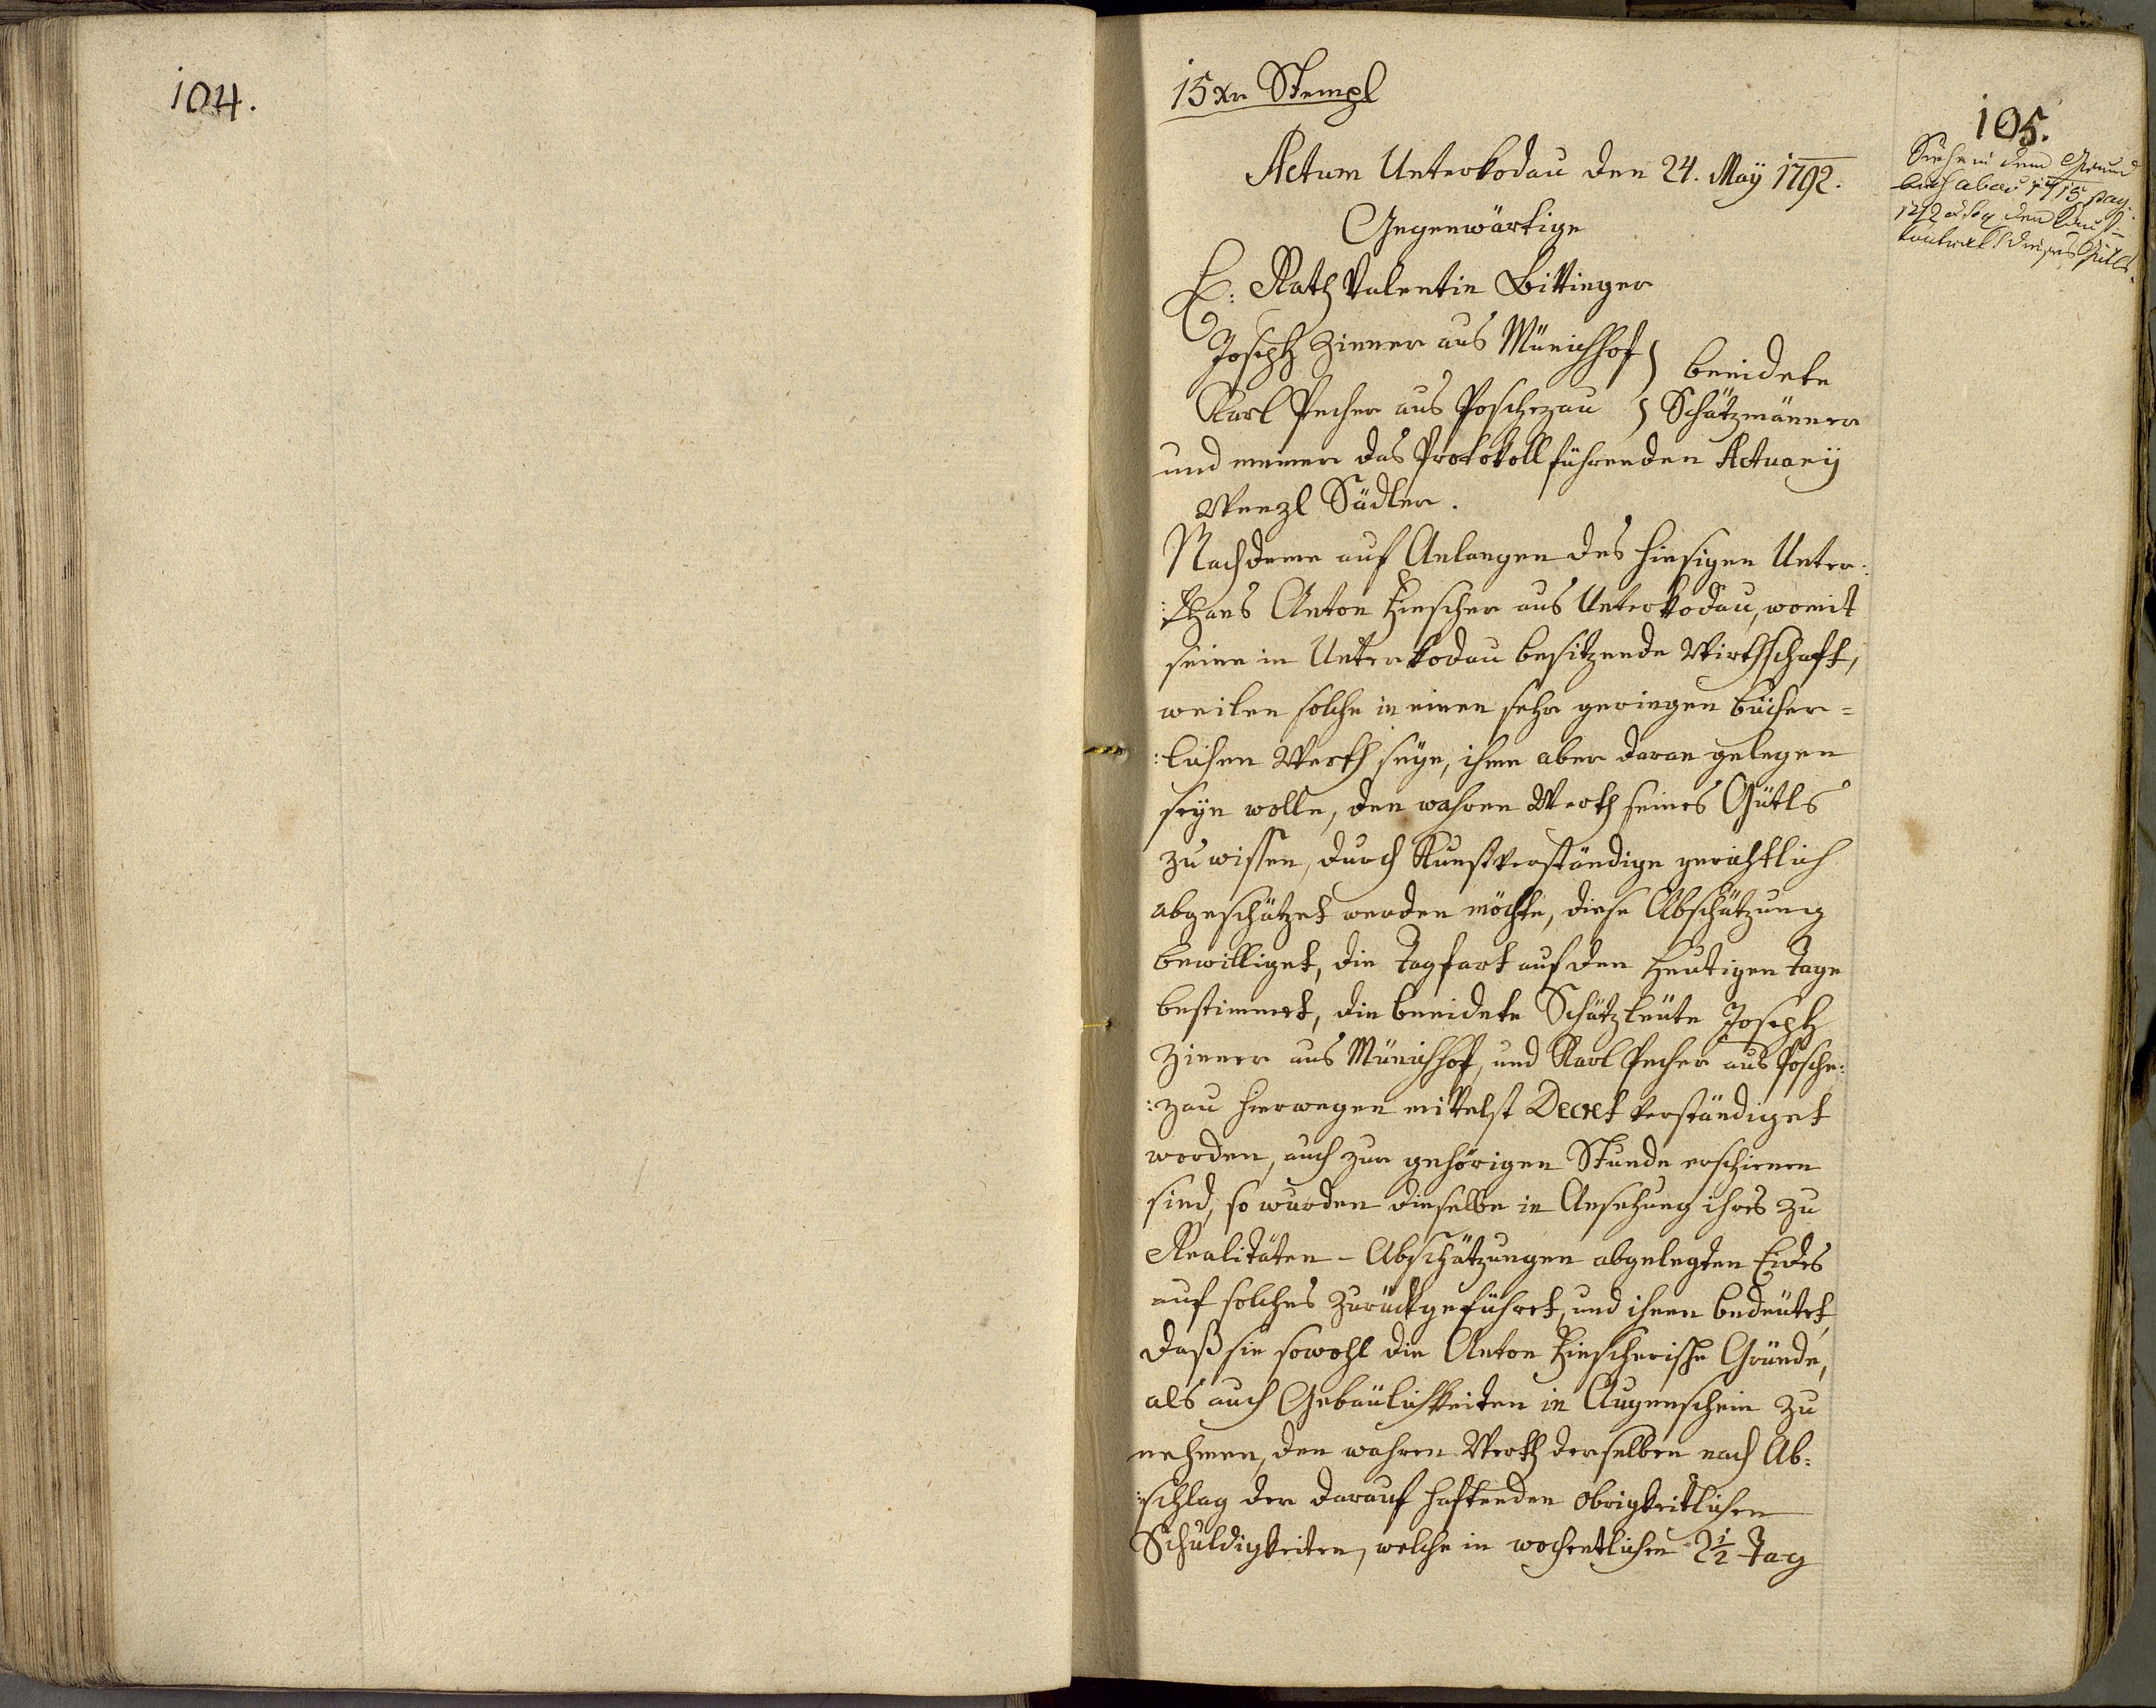 104.
15 xr Stempl
105.
Siehe in dem Grund
buch ab ao 1715 pag.
1212 et seq den Kauf-
kontrakt dieses Gütls.
Actum Unterkodau den 24. Maÿ 1792.
Gegenwärtige
H: Rath Valentin Bittinger
Joseph Zinner aus Münichhof } beeidete
Karl Pecher aus Poschezau } Schätzmänner
und meiner das Protokoll führenden Actuarÿ
Wenzl Sädler.
Nachdeme auf Anlangen des hiesigen Unter:
:thans Anton Hirscher aus Unterkodau, womit
seine in Unterkodau besitzende Wirthschaft,
weilen solche in einen sehr geringen bücher=
:lichen Werth seÿe, ihme aber daran gelegen
seÿn wolle, den wahren Werth seines Gütls
zu wissen, durch Kunstverständige gerichtlich
abgeschätzet werden möchte, diese Abschätzung
bewilliget, die Tagfart auf den heutigen Tage
bestimmet, die beeidete Schätzleute Joseph
Zinner aus Münichhof, und Karl Pecher aus Posche:
:zau hierwegen mittelst Decret verständiget
worden, auch zur gehörigen Stunde erschienen
sind, so wurden dieselbe in Ansehung ihres zu
Realitäten-Abschätzungen abgelegten Eides
auf solches zurückgeführet, und ihnen bedeutet,
daß sie sowohl die Anton Hirscherische Gründe,
als auch Gebäulichkeiten in Augenschein zu
nehmen, den wahren Werth derselben nach Ab:
:schlag der darauf haftenden obrigkeitlichen
Schuldigkeiten, welche in wochentlichen 2 1/2 Tag